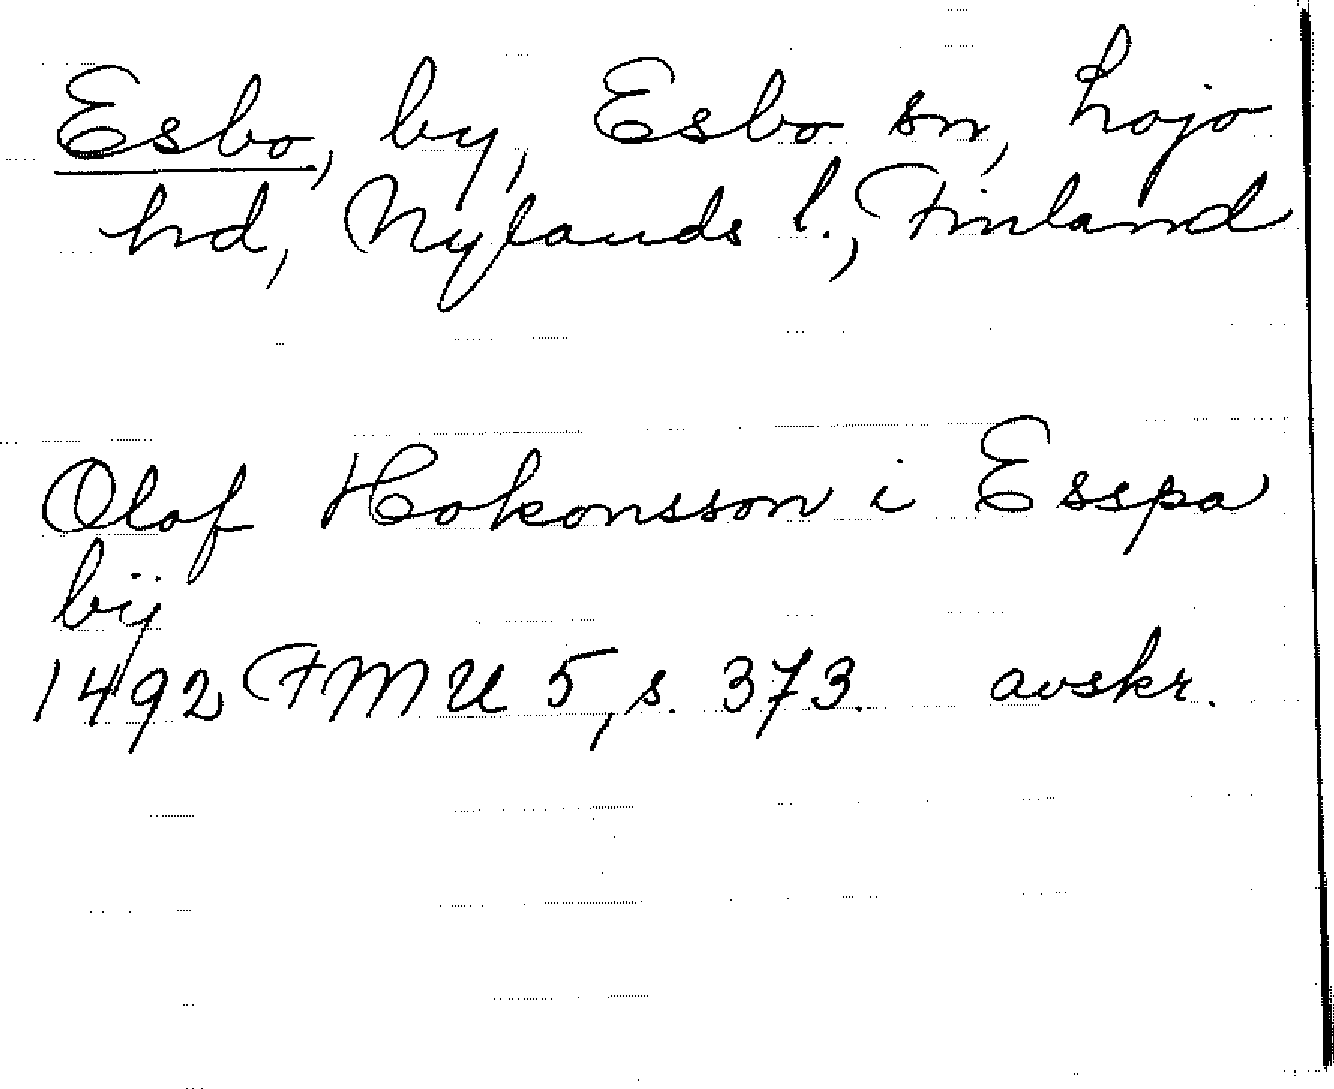 Esbo, by, Esbo sn, Lojo
hd, Nylands l., Finland
Olof Hokonsson i Esspa
bÿ
1492 FMU 5, s. 373. avskr.